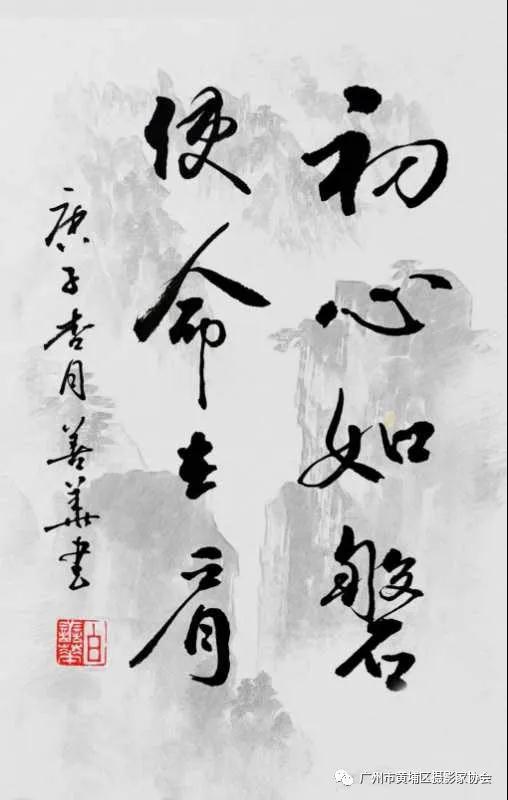 初心如磐
使命在肩
庚子杏月善华书
白善华
广州市黄埔区摄影家协会